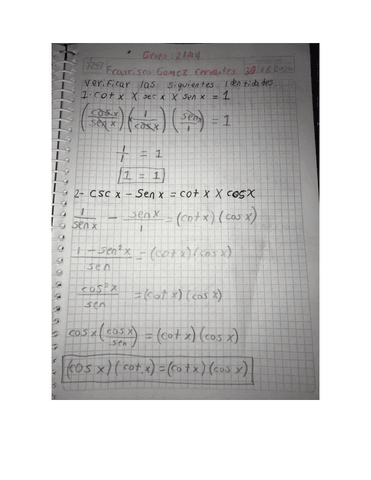 Verificar las siguientes identidades
1. cot x X sec x X sen x = 1
(cos x / sen x) (1 / cos x) (sen / 1) = 1
1/1 = 1
1 = 1
2- CSC x - Sen x = cot x X cos x
1 / sen x - sen x / 1 = (cot x) (cos x)
1 - sen² x / sen = (cot x) (cos x)
cos² x / sen = (cot x) (cos x)
cos x (cos x / sen) = (cot x) (cos x)
(cos x) (cot x) = (cot x) (cos x)